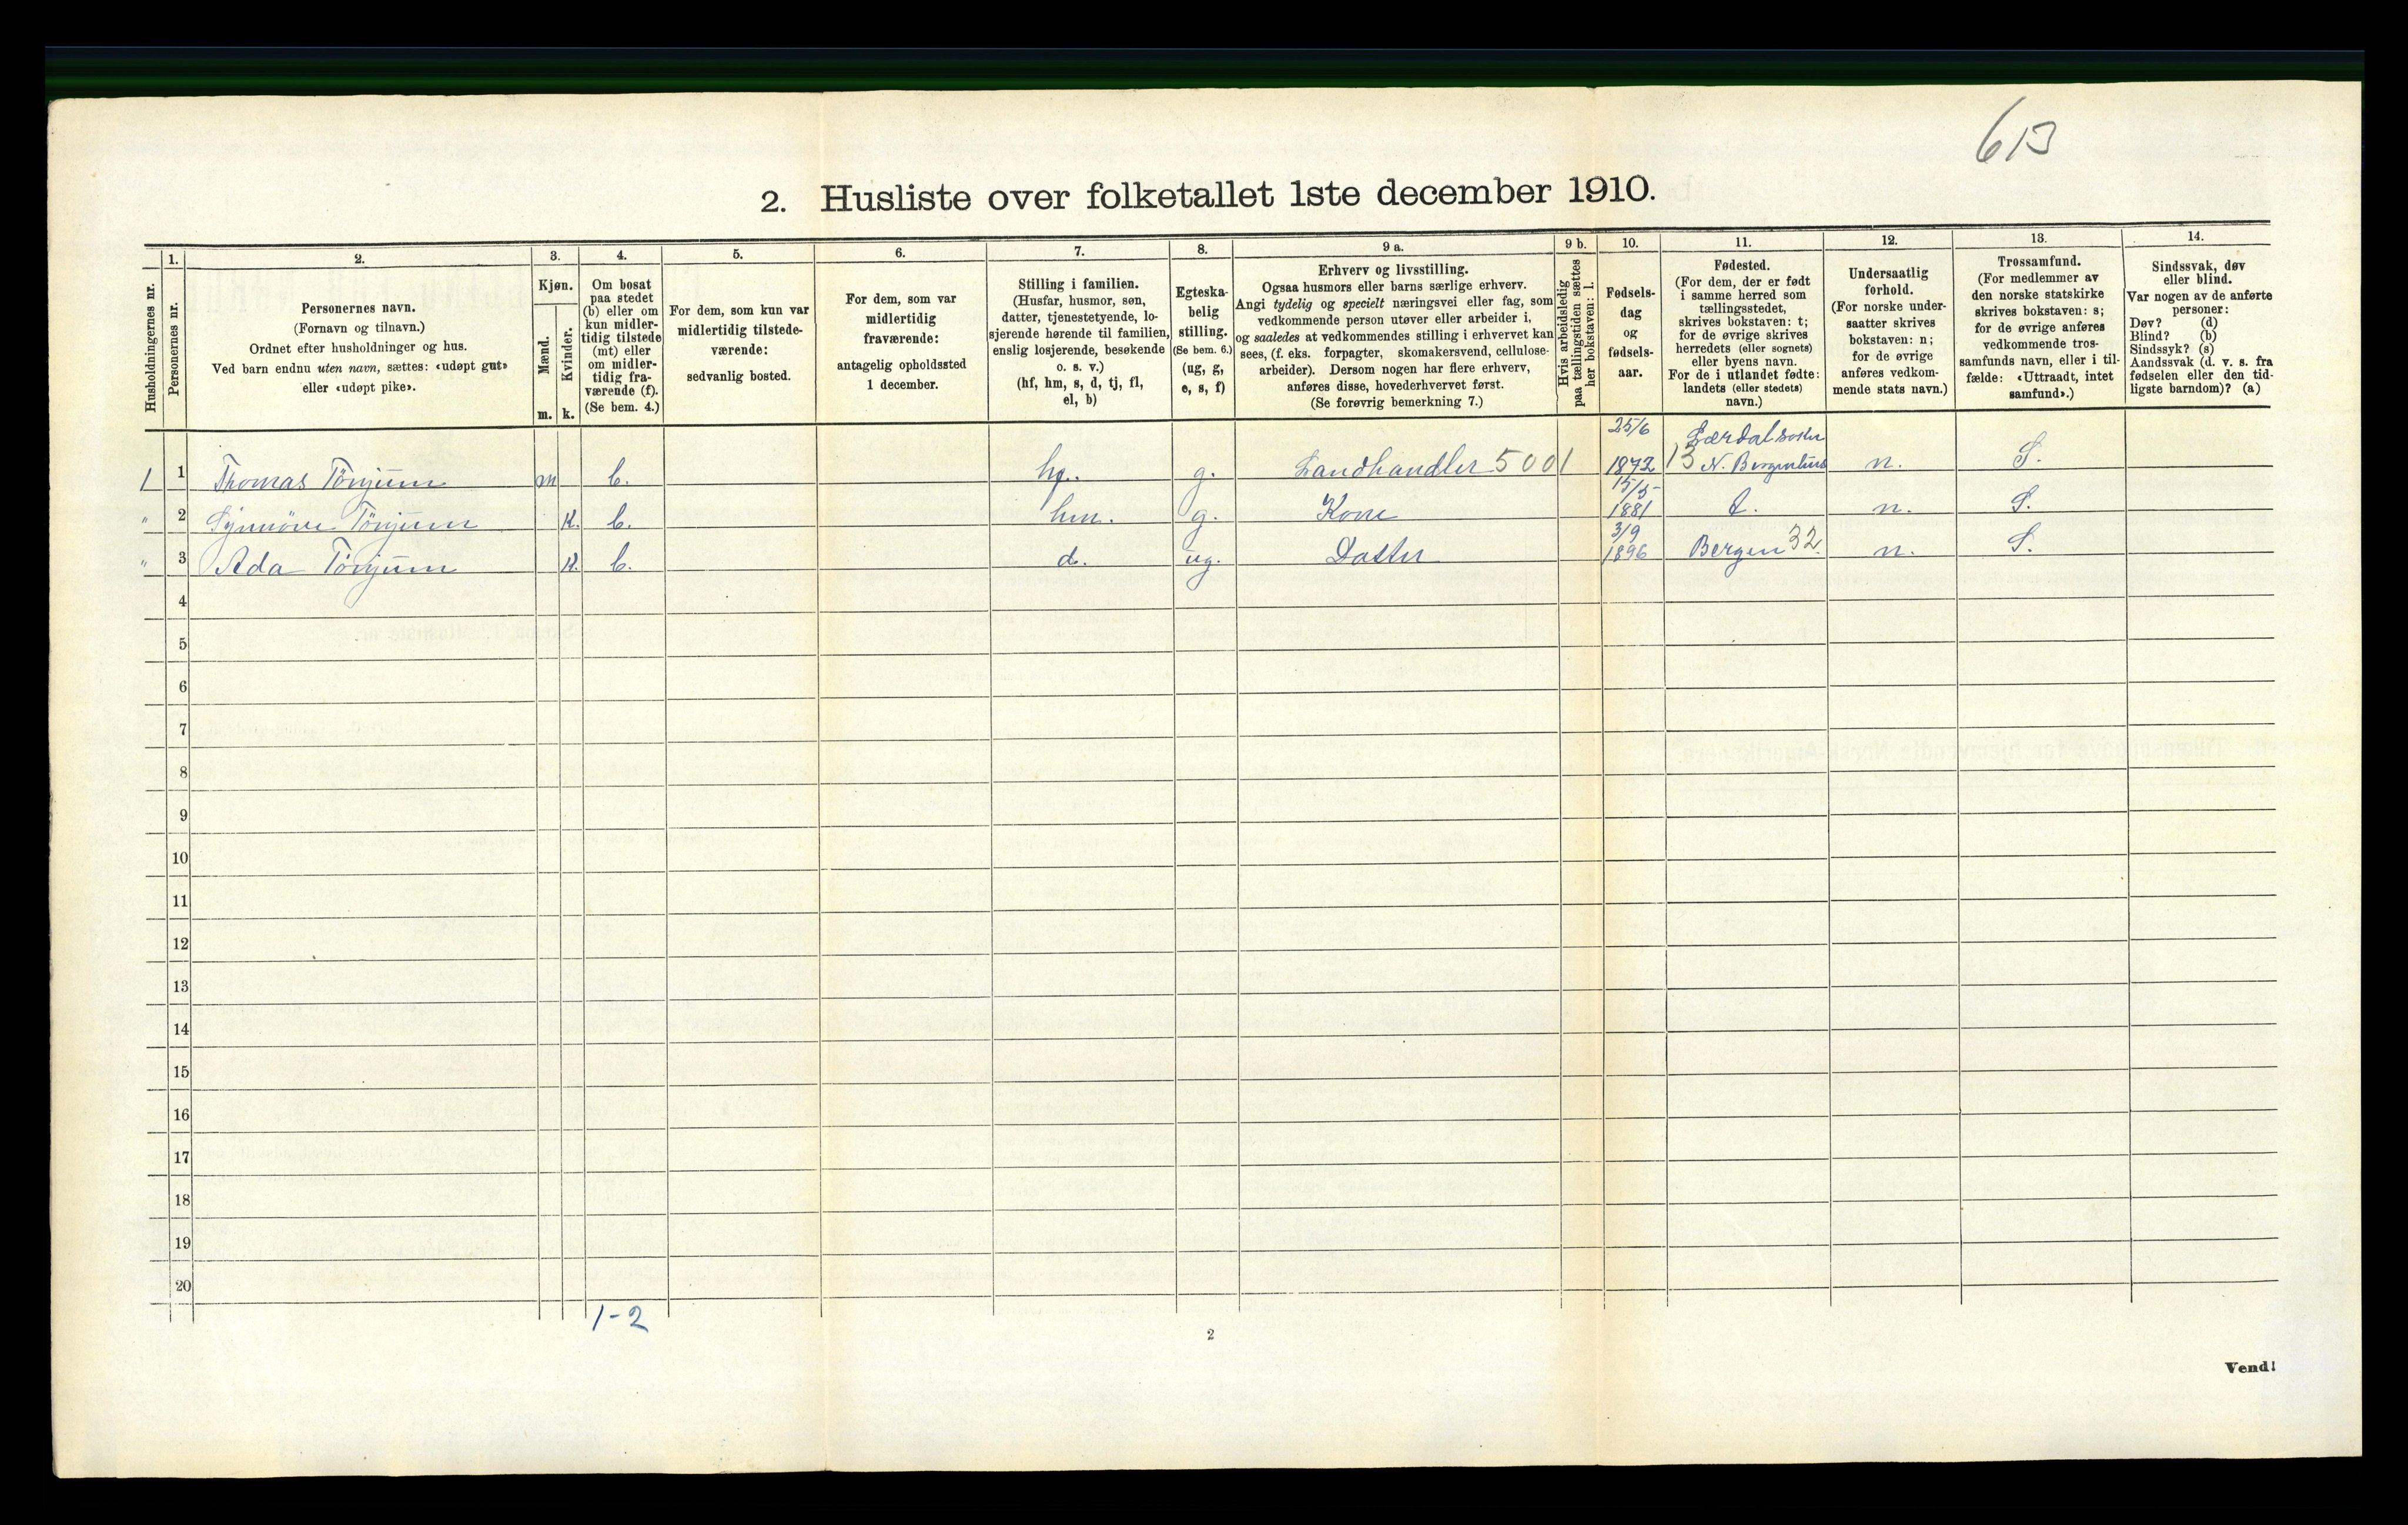 613
2. Husliste over folketallet 1ste december 1910.
Husholdningernes nr.
1.
Personernes nr.
2.
Personernes navn.
(Fornavn og tilnavn.)
Ordnet efter husholdninger og hus.
Ved barn endnu uten navn, sættes: «udøpt gut»
eller «udøpt pike».
3.
Kjøn.
Mænd.
m.
Kvinder.
k.
4.
Om bosat
paa stedet
(b) eller om
kun midler-
tidig tilstede
(mt) eller
om midler-
tidig fra-
værende (f).
(Se bem. 4.)
5.
For dem, som kun var
midlertidig tilstede-
værende:
sedvanlig bosted.
6.
For dem, som var
midlertidig
fraværende:
antagelig opholdssted
1 december.
7.
Stilling i familien.
(Husfar, husmor, søn,
datter, tjenestetyende, lo-
sjerende hørende til familien,
enslig losjerende, besøkende
o. s. v.)
(hf, hm, s, d, tj, fl,
el, b)
8.
Egteska-
belig
stilling.
(Se bem. 6.)
(ug, g,
e, s, f)
9 a.
Erhverv og livsstilling.
Ogsaa husmors eller barns særlige erhverv.
Angi tydelig og specielt næringsvei eller fag, som
vedkommende person utøver eller arbeider i,
og saaledes at vedkommendes stilling i erhvervet kan
sees, (f. eks. forpagter, skomakersvend, cellulose-
arbeider). Dersom nogen har flere erhverv,
anføres disse, hovederhvervet først.
(Se forøvrig bemerkning 7.)
9 b.
Hvis arbeidsledig
paa tællingstiden sættes
her bokstaven: l.
10.
Fødsels-
dag
og
fødsels-
aar.
11.
Fødested.
(For dem, der er født
i samme herred som
tællingsstedet,
skrives bokstaven: t;
for de øvrige skrives
herredets (eller sognets)
eller byens navn.
For de i utlandet fødte:
landets (eller stedets)
navn.)
12.
Undersaatlig
forhold.
(For norske under-
saatter skrives
bokstaven: n;
for de øvrige
anføres vedkom-
mende stats navn.)
13.
Trossamfund.
(For medlemmer av
den norske statskirke
skrives bokstaven: s;
for de øvrige anføres
vedkommende tros-
samfunds navn, eller i til-
fælde: «Uttraadt, intet
samfund».)
14.
Sindssvak, døv
eller blind.
Var nogen av de anførte
personer:
Døv? (d)
Blind? (b)
Sindssyk? (s)
Aandssvak (d. v. s. fra
fødselen eller den tid-
ligste barndom)? (a)
25/6 Lærdal
1 1 Thomas Tönjum m b. hf. g. Landhandler 5001 1872 13 N. Bergenhus n. S.
15/5
" 2 Synnöve Tönjum K. b. hm. g. Kone 1881 t. n. S.
3/9
" 3 Ada Tönjum K. b. d. ug. Datter 1896 Bergen 32 n. S.
4
5
6
7
8
9
10
11
12
13
14
15
16
17
18
19
20
1-2
2
Vend!